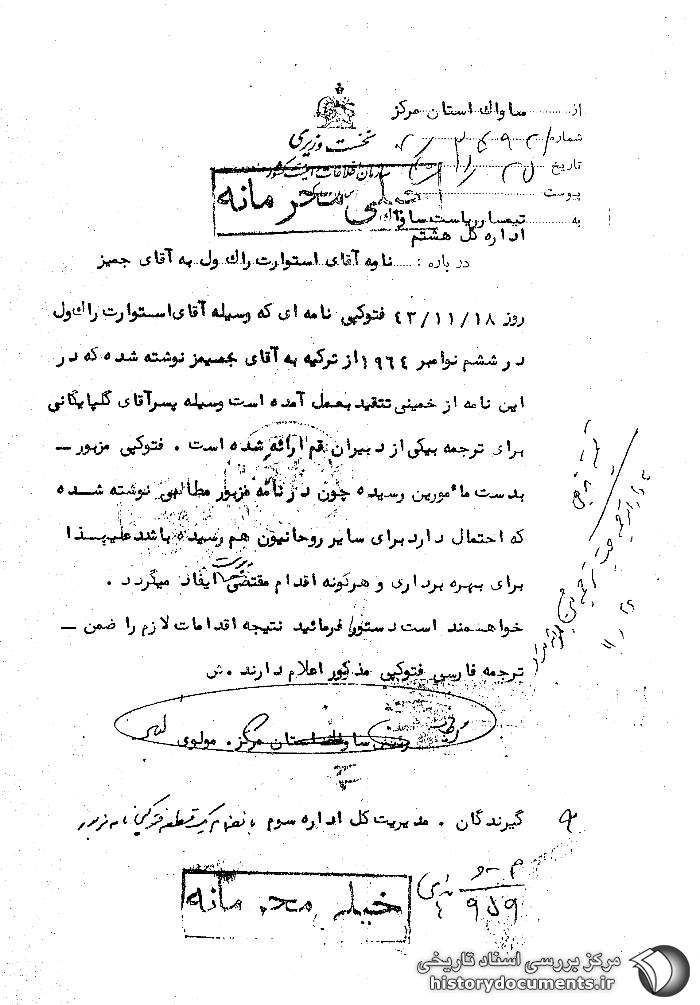 از ساواك استان مركز
شماره
نخست وزیری
تاریخ
سازمان اطلاعات و امنیت کشور
پیوست
خیلی محرمانه
به تیمسار ریاست ساواك
اداره كل هشتم
در باره : نامه آقای استوارت راك ول به آقای جمیز
روز ۴۳/۱۱/۱۸ فتوکپی نامه ای که وسیله آقای استوارت راك ول
در ششم نوامبر ۱۹۶۴ از ترکیه به آقای جمیز نوشته شده که در
این نامه از خمینی تنقید بعمل آمده است وسیله پسر آقای گلپایگانی
برای ترجمه بیکی از دبیران قم ارائه شده است . فتوکپی مزبور ــ
بدست مأمورین رسیده چون در نامه مزبور مطالبی نوشته شــده
که احتمال دارد برای سایر روحانیون هم رسیده باشد علیهــذا
برای بهره برداری و هرگونه اقدام مقتضی بپیوست ایفاد میگردد .
خواهشمند است دستور فرمائید نتیجه اقدامات لازم را ضمن ــ
ترجمه فارسی فتوکپی مذکور اعلام دارند . ش
رئیس ساواك استان مرکز . مولوی
گیرندگان . مدیریت کل اداره سوم بانضمام یک قطعه فتوکپی نامه مزبور
خیلی محرمانه
مرکز بررسی اسناد تاریخی
historydocuments.ir